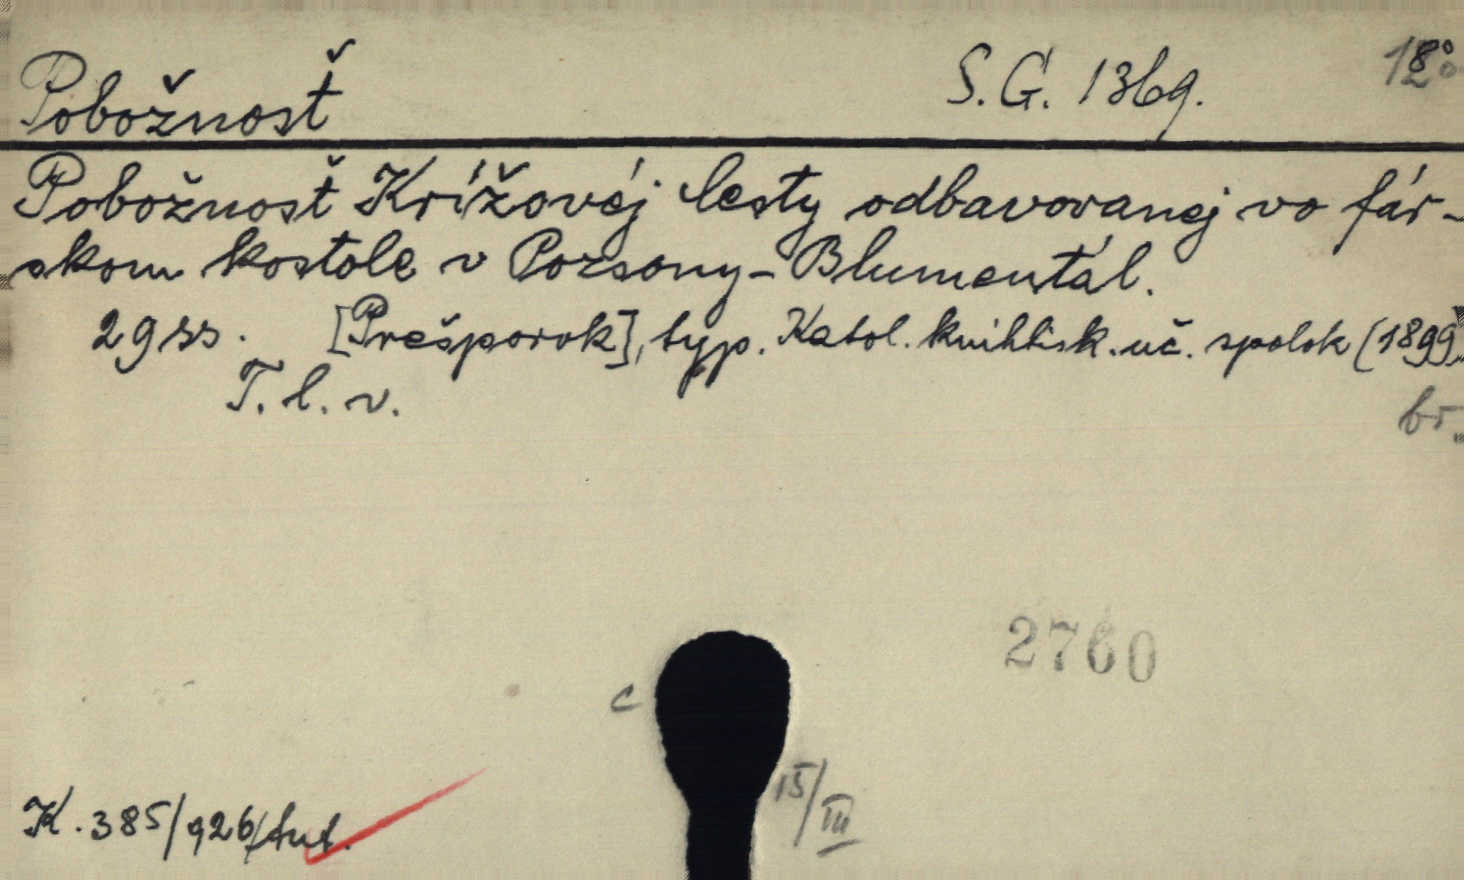 Pobožnosť S. G. 1369. 8°
Pobožnosť Krížovéj cesty odbavovanej vo fár-
skom kostole v Pozsony-Blumentál.
29 ss. [Prešporok], typ. Katol. knihtisk. uč. spolok (1899)
T. l. v.
br.
2760
c
15/III
K. 385/926/Aut.